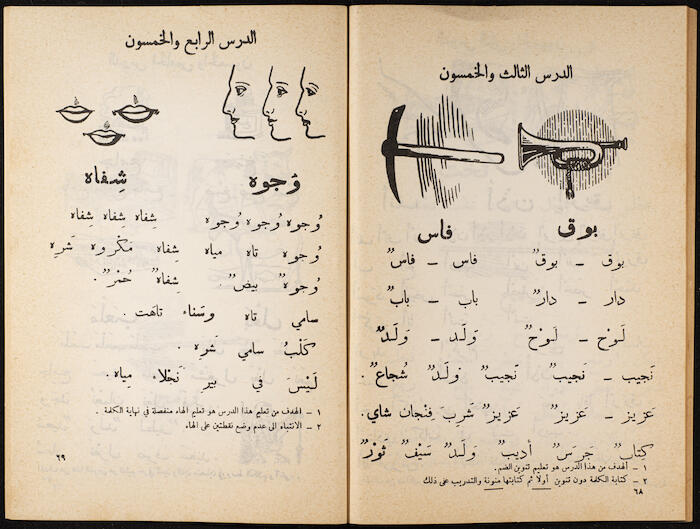 الدرس الثالث والخمسون
بوق فاس
بوق – بوقٌ فاس – فاسٌ
دار – دارٌ باب – بابٌ
لَوْح – لَوْحٌ وَلَد – وَلَدٌ
نَجيب – نَجيبٌ نَجيبٌ وَلَدٌ شُجاعٌ.
عَزيز – عَزيزٌ عَزيزٌ شَرِبَ فَنْجان شاي.
كِتابٌ جَرَسٌ أديبٌ وَلَدٌ سَيْفٌ ثَوْرٌ
١ – الهدف من هذا الدرس هو تعليم تنوين الضم.
٢ – كتابة الكلمة دون تنوين أولاً ثم كتابتها منونة والتدريب على ذلك
٦٨
الدرس الرابع والخمسون
وُجوه شِفاه
وُجوه وُجوه وُجوه شِفاه شِفاه شِفاه
وُجوه تاه مياه شِفاه مَكْروه شَرِه
وُجوهٌ بيضٌ. شِفاهٌ حُمْرٌ.
سامي تاه وَسَناء تاهَت.
كَلْبُ سامي شَرِه.
لَيْسَ في بير نَجْلاء مِياه.
١ – الهدف من تعليم هذا الدرس هو تعليم الهاء منفصلة في نهاية الكلمة.
٢ – الانتباه الى عدم وضع نقطتين على الهاء
٦٩